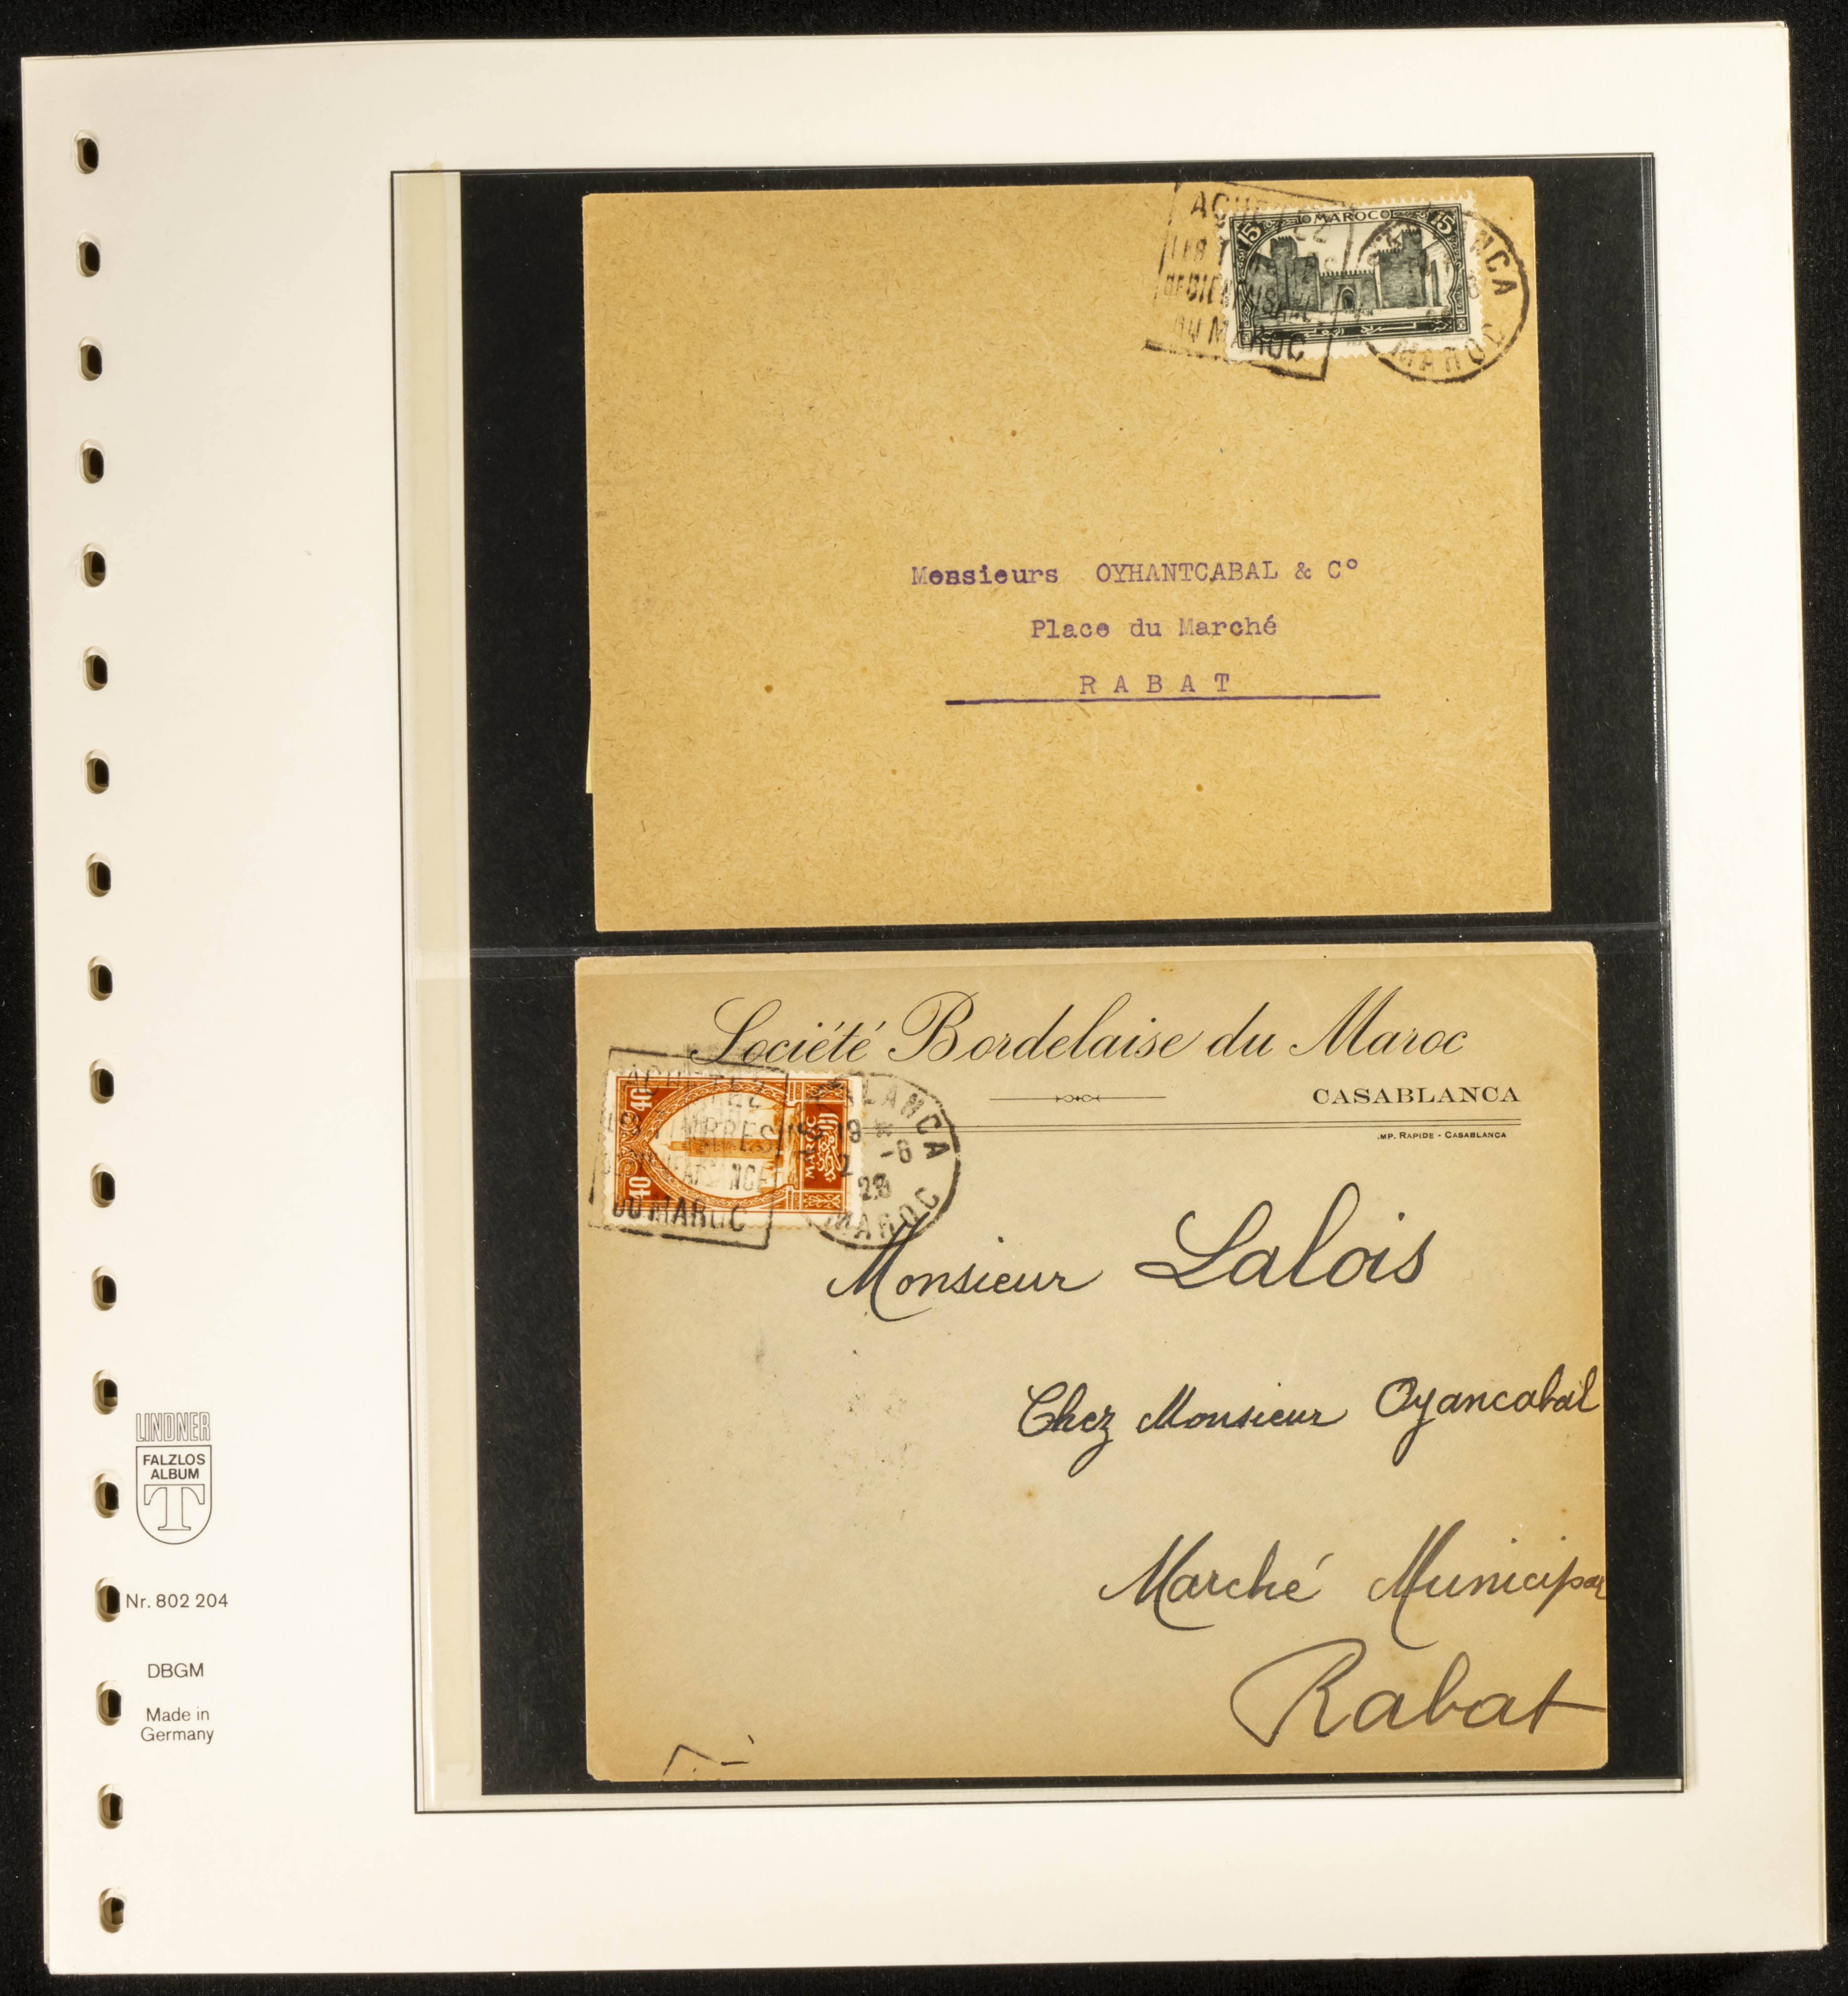 ACHETEZ
LES TIMBRES
DE BIENFAISANCE
DU MAROC
15 MAROC 15
CASABLANCA
MAROC
Messieurs OYHANTCABAL & Cº
Place du Marché
RABAT
Société Bordelaise du Maroc
CASABLANCA
IMP. RAPIDE - CASABLANCA
ACHETEZ
LES TIMBRES
DE BIENFAISANCE
DU MAROC
40 MAROC 40
CASABLANCA
2 -6
28
MAROC
Monsieur Lalois
Chez Monsieur Oyancabal
Marché Municipal
Rabat
LINDNER
FALZLOS
ALBUM
T
Nr. 802 204
DBGM
Made in
Germany